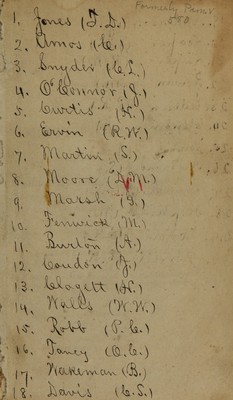 Formerly Paris
1. Jones (T. D.)
2. Amos (C.)
3. Snyder (C. L.)
4. O'Connor (J.)
5. Curtis (H.)
6. Ervin (R. W.)
7. Martin (S.)
8. Moore (D. M.)
9. Marsh
10. Fenwick (M.)
11. Burton (A.)
12. Condon (J.)
13. Clagett (H.)
14. Walls (W. W.)
15. Robb (P. C.)
16. Taney (O. C.)
17. Wakeman (B.)
18. Davis (C. S.)